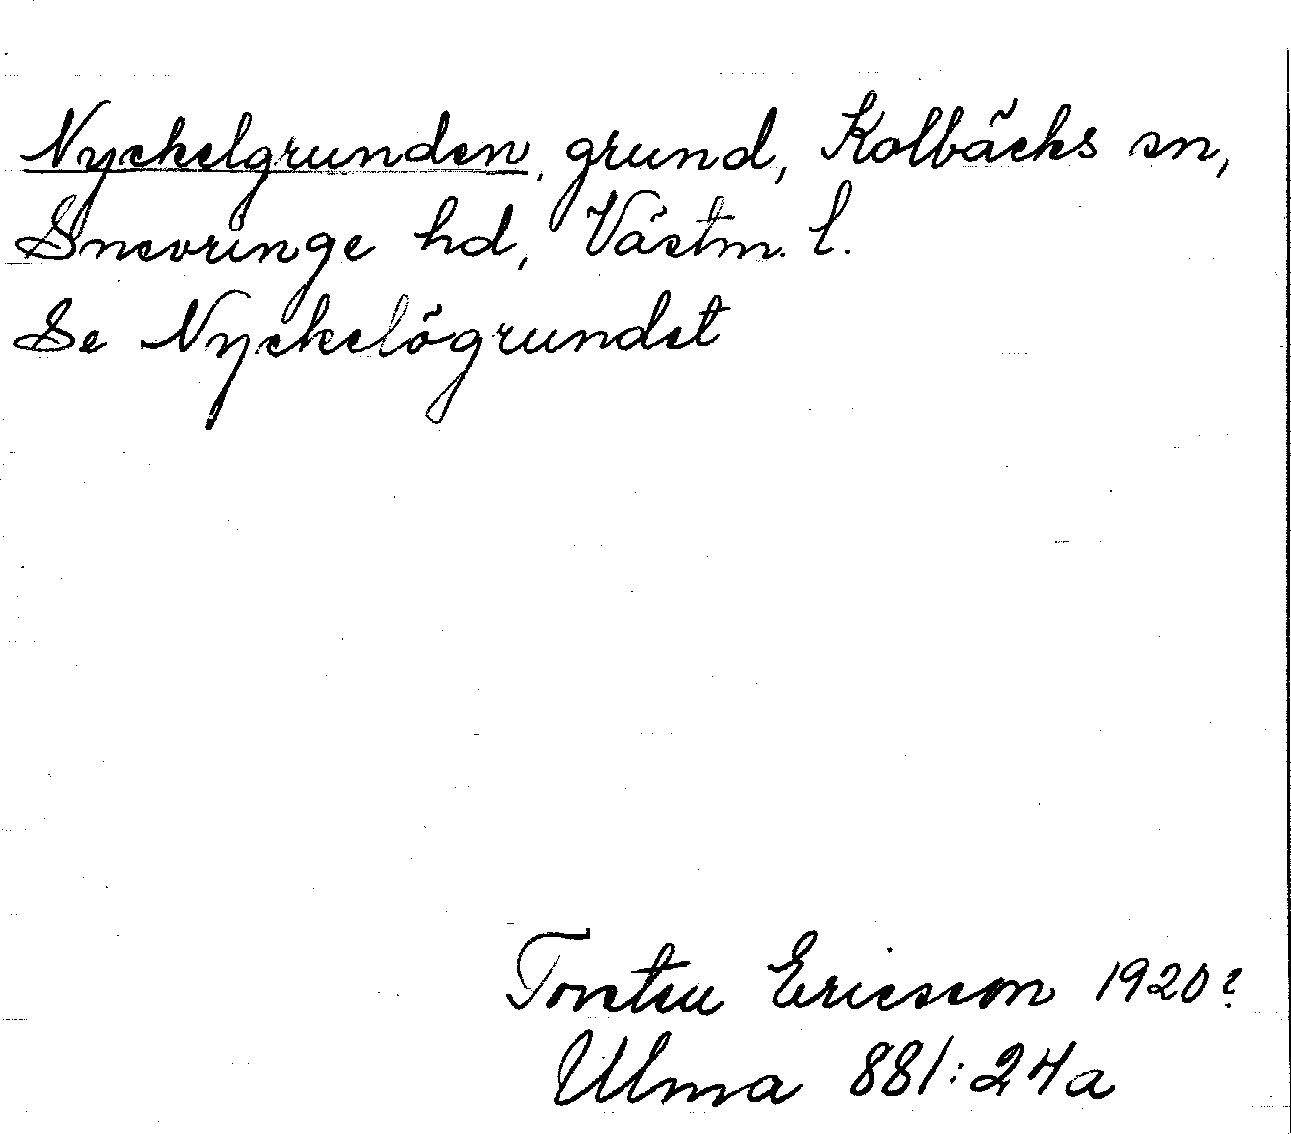 Nyckelgrunden, grund, Kolbäcks sn,
Snevringe hd, Västm. l.
Se Nyckelögrundet
Torsten Ericsson 1920?
Ulma 881:24a